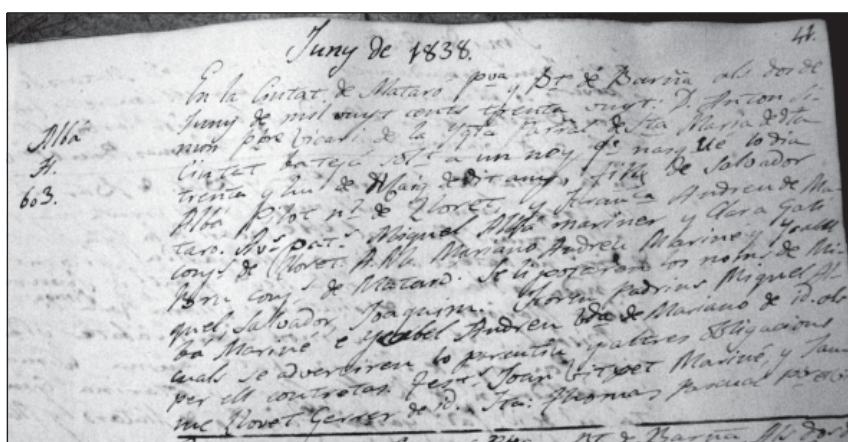 Juny de 1838.
41.
Albá
H.
603.
En la Ciutat de Mataro pva y Bt de Barña als dos de
Juny de mil vuyt cents trenta vuyt: D. Anton Si-
mon pbre Vicari de la Ygta Parral de Sta Maria de dta
Ciutat bategá solt a un noy qe nasqué lo dia
trenta y hu de Maig de dit any, fill de Salvador
Albá Pilot nl de Lloret, y Andreu de Ma-
taro. Avs pats Miquel Albá mariner y Clara
conys de Lloret. Mariano Andreu Mariné y Ysabel
conys de Mataró. Se li posaren los noms de Mi-
quel, Salvador, Joaquim. Foren padrins Miquel Al-
bá Mariné e Ysabel Andreu Vda de Mariano de id. als
cuals se advertiren lo parentiu y altres obligacions
per ell contretas. Test. Joan Mariné, y Jau-
me Llovet Gerrer de id. Thomas Pascual